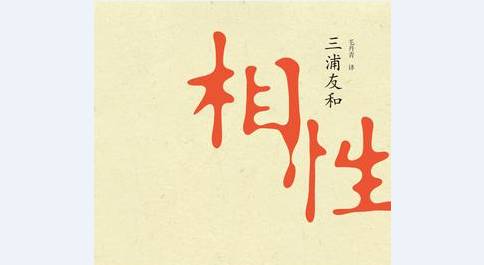 相性
三浦友和
毛丹青 译